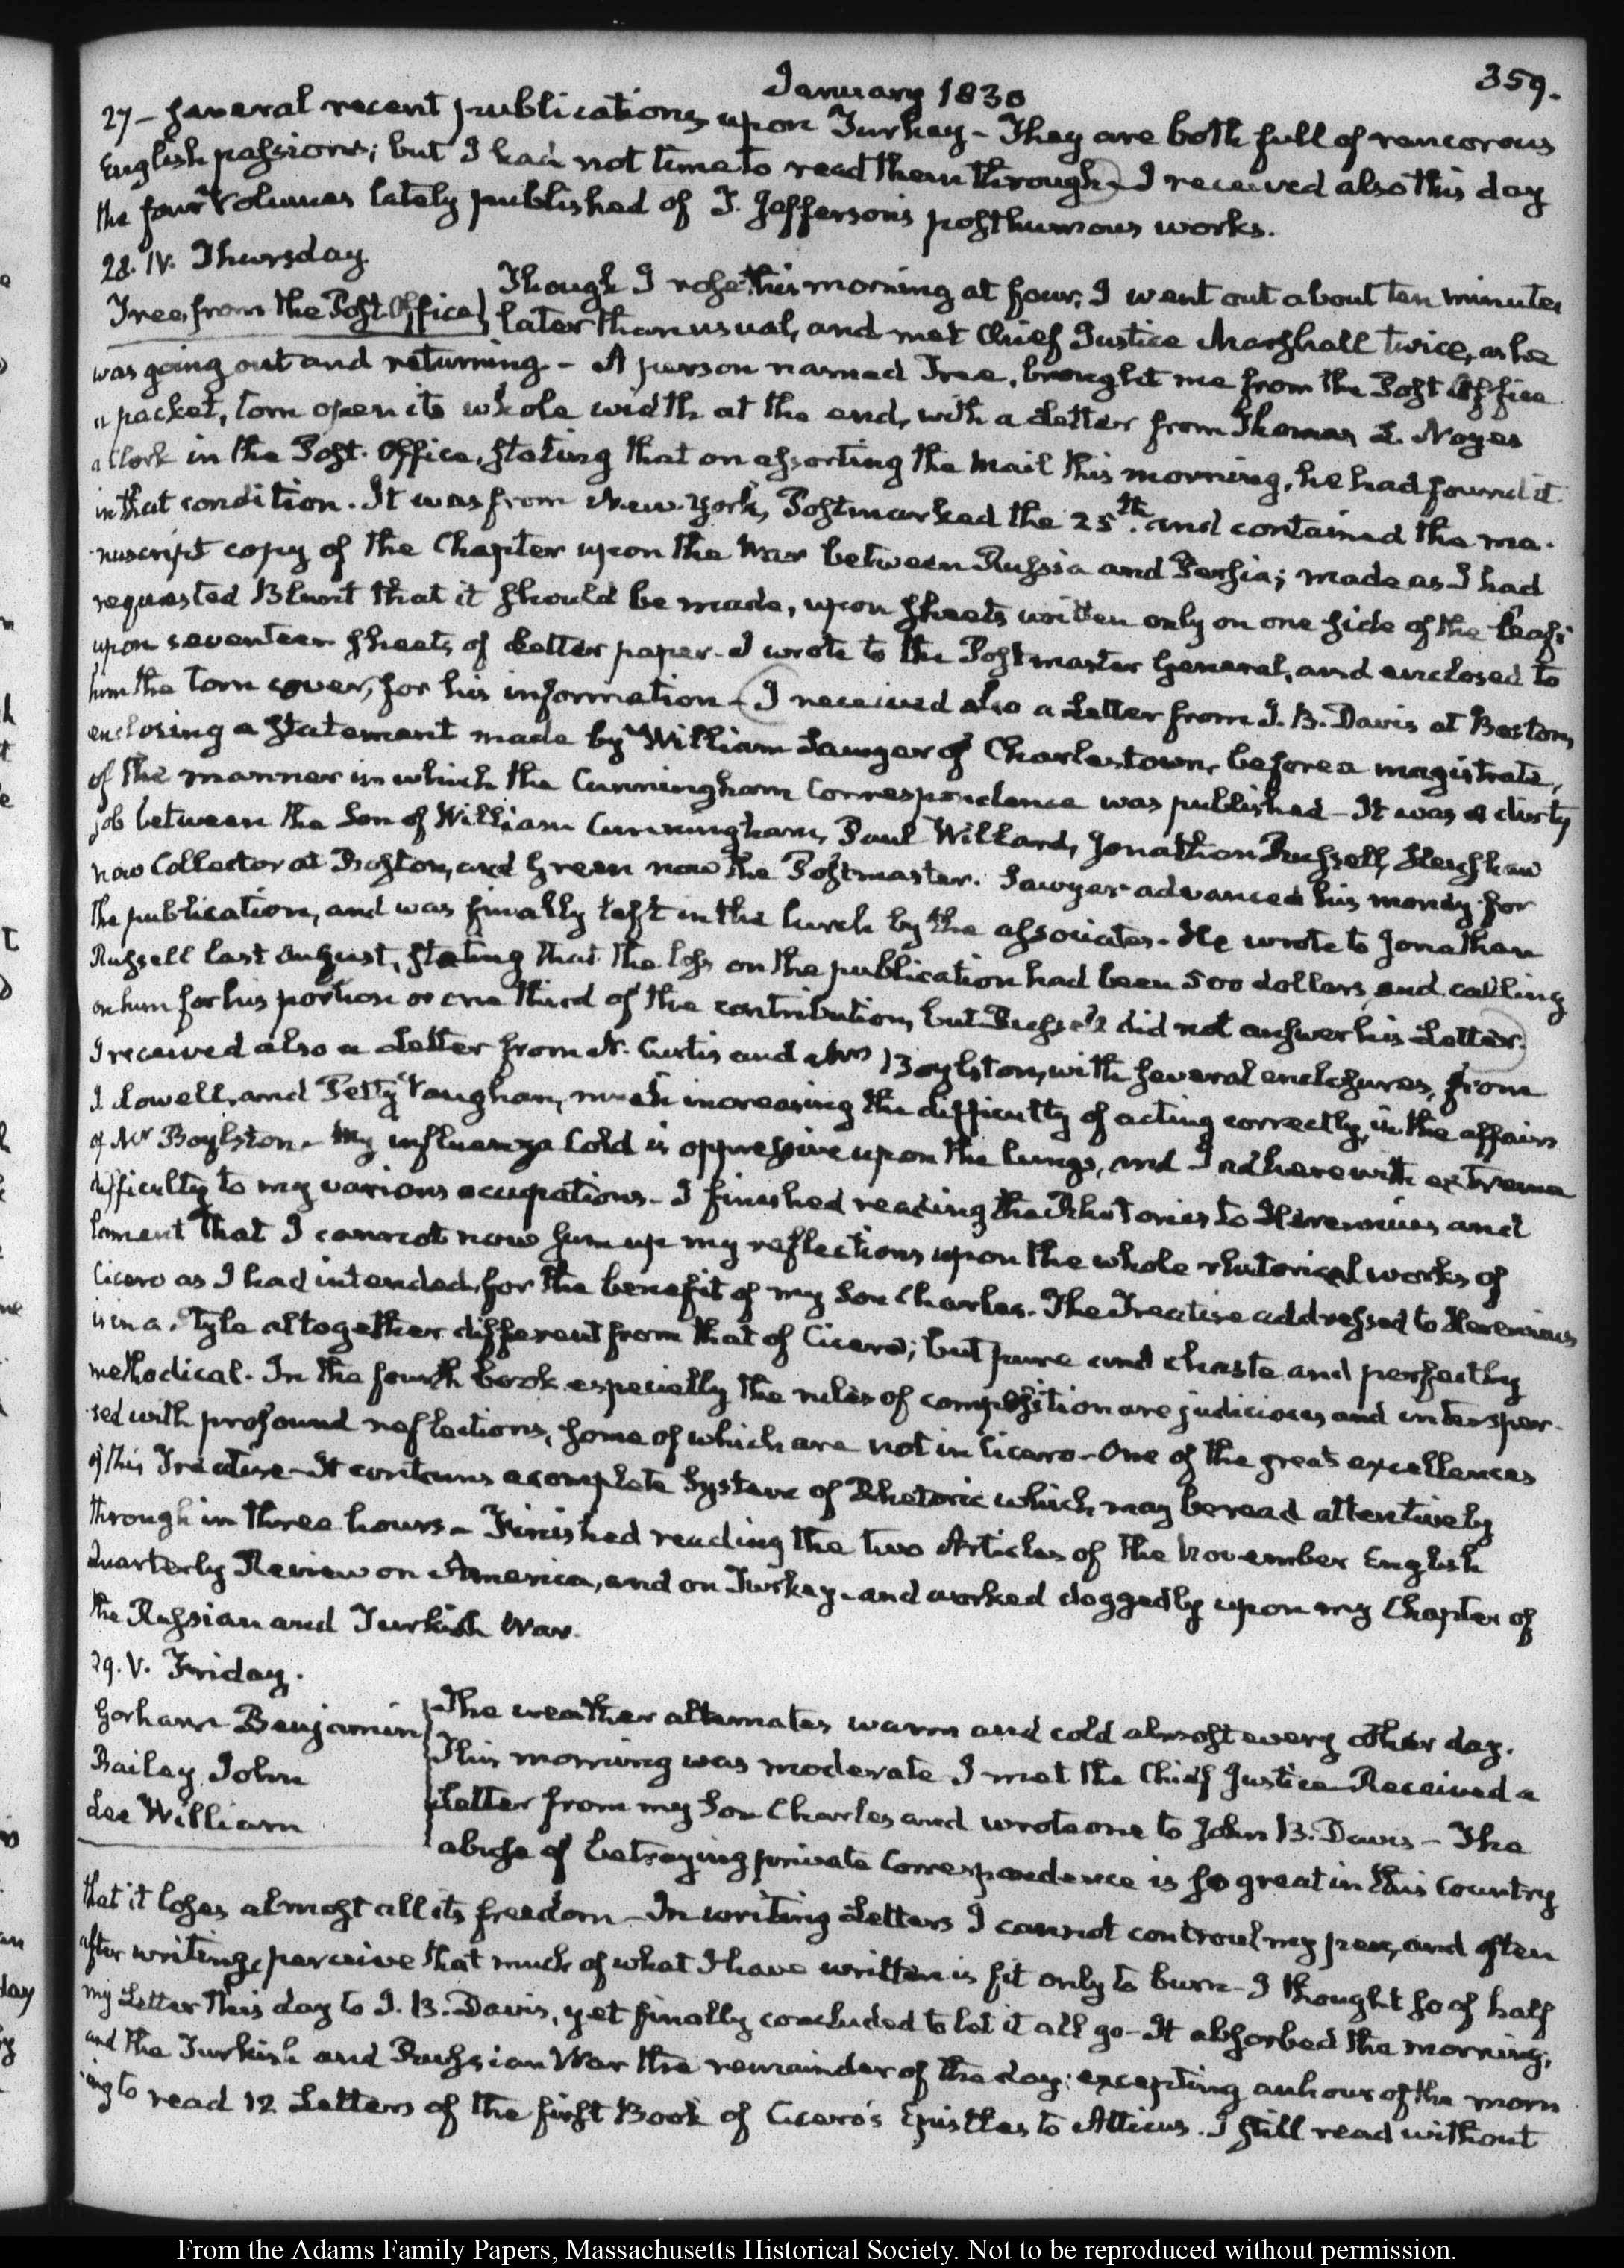 January 1830
359.
27 — several recent publications upon Turkey — They are both full of rancorous
English passions; but I had not time to read them through — I received also this day
the four Volumes lately published of T. Jefferson's posthumous works.
28. IV. Thursday.
Tree, from the Post Office
Though I rose this morning at four, I went out about ten minutes
later than usual, and met Chief Justice Marshall twice, as he
was going out and returning — A person named Tree, brought me from the Post Office
a packet, torn open its whole width at the end, with a Letter from Thomas L. Noyes
a Clerk in the Post-Office, stating that on assorting the Mail this morning, he had found it
in that condition. It was from New-York, Postmarked the 25th. and contained the ma-
nuscript copy of the Chapter upon the War between Russia and Persia; made as I had
requested Blunt that it should be made, upon sheets written only on one side of the leaf;
upon seventeen sheets of Letter paper — I wrote to the Postmaster General, and enclosed to
him the torn cover, for his information — I received also a Letter from J. B. Davis at Boston,
enclosing a statement made by William Sawyer of Charlestown, before a magistrate,
of the manner in which the Cunningham Correspondence was published — It was a dirty
job between the Son of William Cunningham, Paul Willard, Jonathan Russell, Henshaw
now Collector at Boston, and Green now the Postmaster. Sawyer advanced his money for
the publication, and was finally left in the lurch by the associates. He wrote to Jonathan
Russell last August, stating that the loss on the publication had been 500 dollars, and calling
on him for his portion or one third of the contribution, but Russell did not answer his Letter.
I received also a Letter from N. Curtis and Mrs Boylston, with several enclosures, from
J. Lowell, and Petty Vaughan, much increasing the difficulty of acting correctly, in the affairs
of Mr Boylston — My influenza Cold is oppressive upon the lungs, and I adhere with extreme
difficulty to my various occupations — I finished reading the Rhetorics to Herennius and
lament that I cannot now sum up my reflections upon the whole rhetorical works of
Cicero as I had intended, for the benefit of my Son Charles. The Treatise addressed to Herennius
is in a Style altogether different from that of Cicero; but pure and chaste and perfectly
methodical. In the fourth book especially the rules of composition are judicious and intersper-
sed with profound reflections, some of which are not in Cicero — One of the great excellences
of this Treatise — It contains a complete System of Rhetoric which may be read attentively
through in three hours — Finished reading the two Articles of the November English
Quarterly Review on America, and on Turkey — and worked doggedly upon my Chapter of
the Russian and Turkish War.
29. V. Friday.
Gorham Benjamin
Bailey John
Lee William
The weather alternates warm and cold almost every other day.
This morning was moderate I met the Chief Justice — Received a
Letter from my Son Charles and wrote one to John B. Davis — The
abuse of betraying private Correspondence is so great in this Country
that it loses almost all its freedom — In writing Letters I cannot controul my pen, and often
after writing, perceive that much of what I have written is fit only to burn — I thought so of half
my Letter this day to J. B. Davis, yet finally concluded to let it all go — It absorbed the morning;
and the Turkish and Russian War the remainder of the day; excepting an hour of the morn
-ing to read 12 Letters of the first Book of Cicero's Epistles to Atticus. I still read without
From the Adams Family Papers, Massachusetts Historical Society. Not to be reproduced without permission.